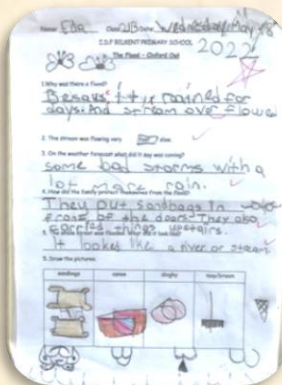 Name: Eda Class: 2/B Date: Wednesday May 18
2022
I.D.F BILKENT PRIMARY SCHOOL
The Flood - Oxford Owl
1. Why was there a flood?
Becaus it is rained for
days. And stream over flowed
2. The stream was flowing very
3. On the weather forecast what did it say was coming?
some bad storms with a
lot more rain.
4. How did the family protect themselves from the flood?
They put sandbags in
front of the doors. They also
carried things upstairs.
It lookes like a river or stream
5. Draw the pictures.
sandbags canoe dinghy mop/broom